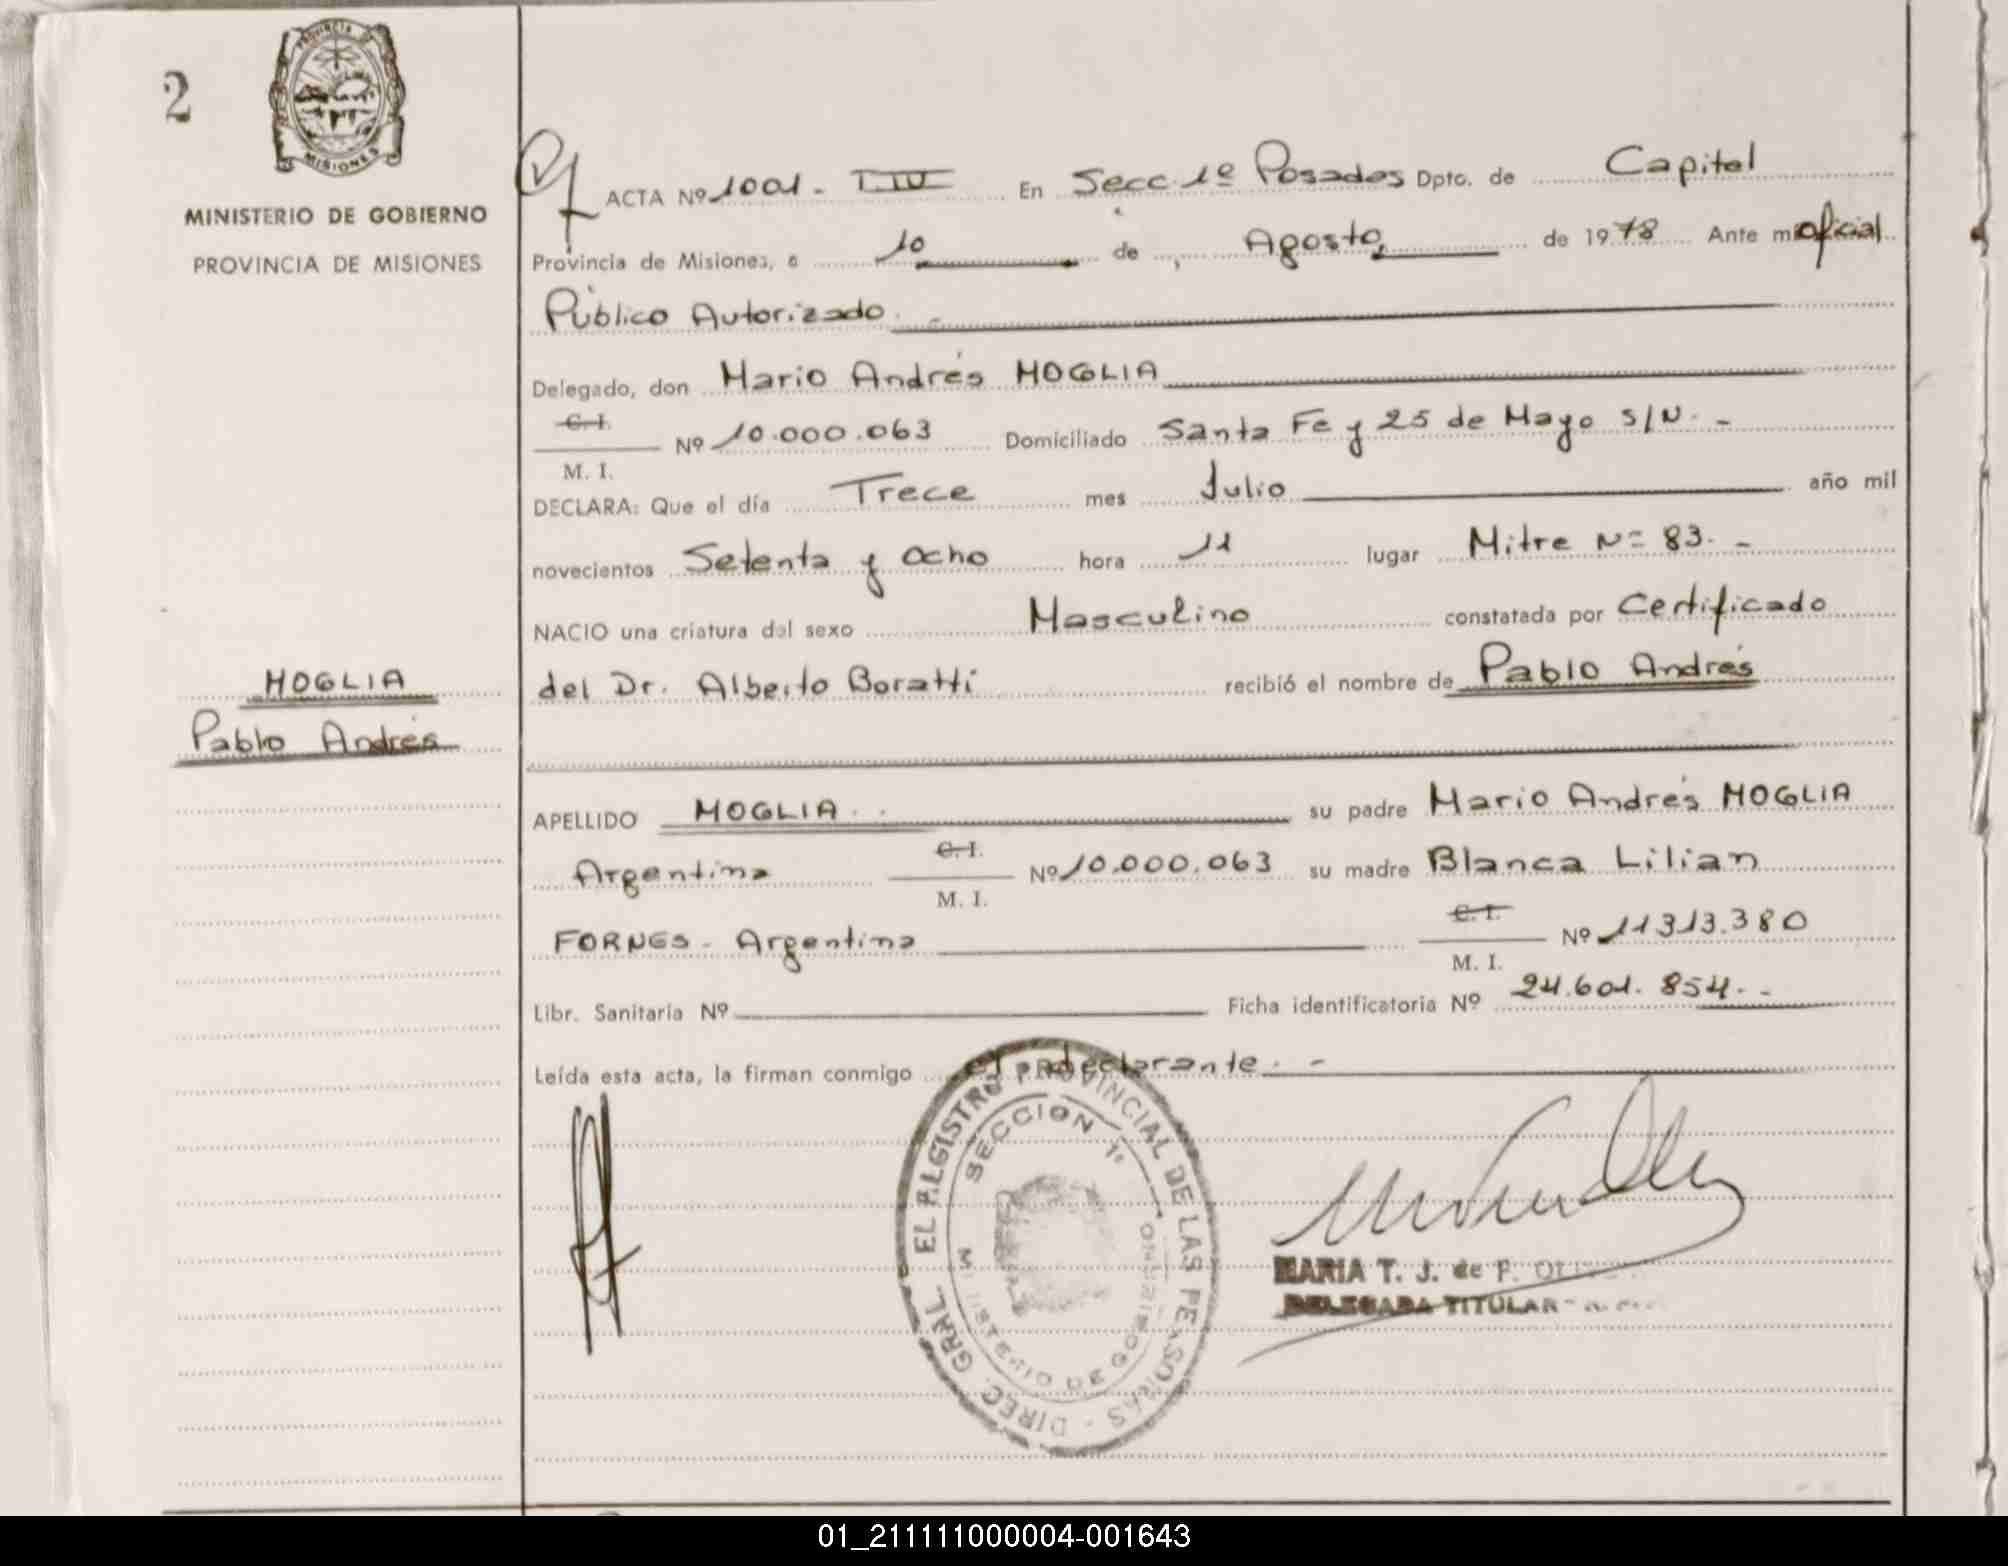 2
PROVINCIA DE
MISIONES
MINISTERIO DE GOBIERNO
PROVINCIA DE MISIONES
MOGLIA
Pablo Andrés
ACTA Nº 1001. - T. IV En Secc 1º Posadas Dpto. de Capital
Provincia de Misiones, a 10 de Agosto, de 1978 Ante mi Oficial
Público Autorizado. -
Delegado, don Mario Andrés MOGLIA
C. I.
M. I.
Nº 10.000.063 Domiciliado Santa Fe y 25 de Mayo S/N. -
DECLARA: Que el día Trece mes Julio año mil
novecientos Setenta y Ocho hora 11 lugar Mitre Nº 83. -
NACIO una criatura del sexo Masculino constatada por Certificado
del Dr. Alberto Boratti recibió el nombre de Pablo Andrés
APELLIDO MOGLIA. su padre Mario Andrés MOGLIA
Argentina C. I. M. I. Nº 10.000.063 su madre Blanca Lilian
FORNES - Argentina C. I. M. I. Nº 11313.380
Libr. Sanitaria Nº Ficha identificatoria Nº 24.601.854. -
Leída esta acta, la firman conmigo el declarante. -
DIREC. GRAL. EL REGISTRO PROVINCIAL DE LAS PERSONAS -
SECCION 1º
MINISTERIO DE GOBIERNO
MARIA T. J. de F.
DELEGADA TITULAR
01_211111000004-001643